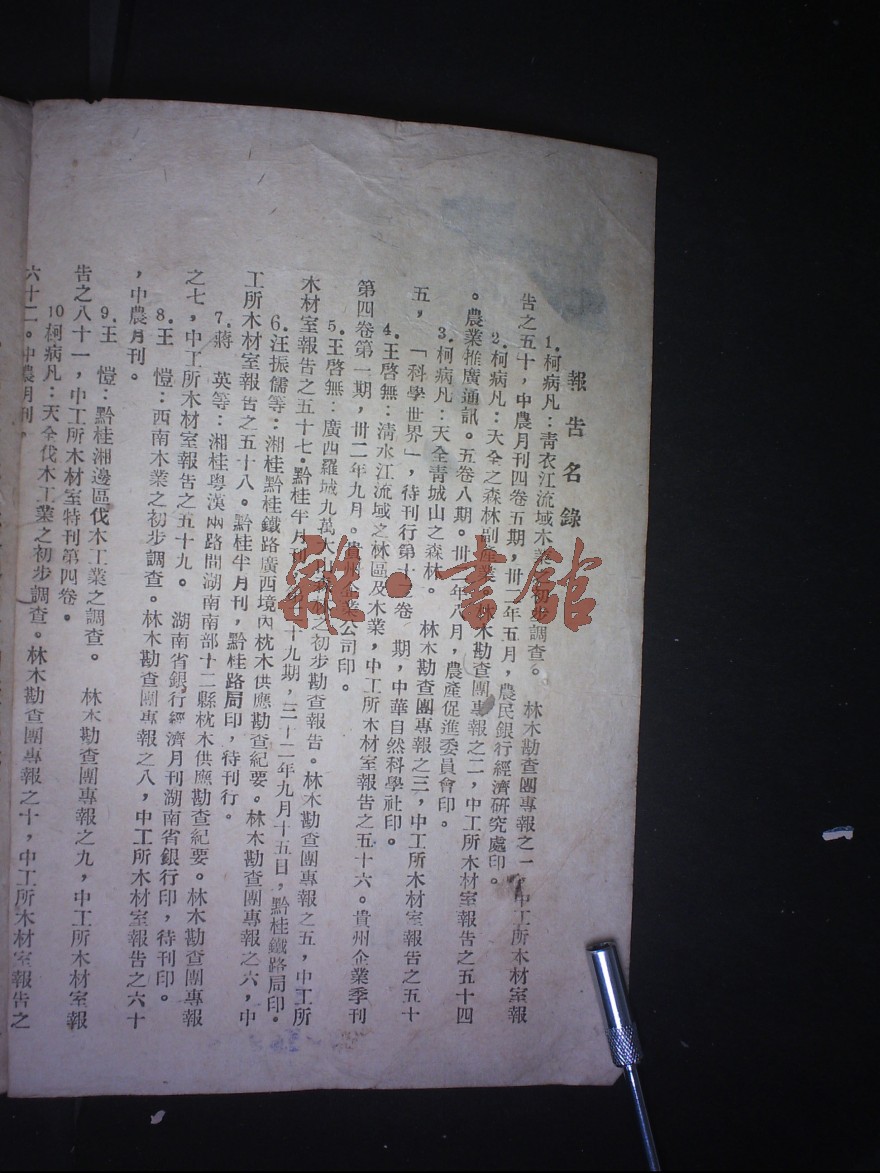 報告名錄
1.柯病凡：青衣江流域木業之初步調查。 林木勘查團專報之一，中工所木材室報
告之五十，中農月刊四卷五期，卅二年五月，農民銀行經濟研究處印。
2.柯病凡：天全之森林副產業 林木勘查團專報之二，中工所木材室報告之五十四
。農業推廣通訊。五卷八期。卅二年八月，農產促進委員會印。
3.柯病凡：天全青城山之森林。 林木勘查團專報之三，中工所木材室報告之五十
五，「科學世界」，待刊行第十一卷 期，中華自然科學社印。
4.王啓無：清水江流域之林區及木業，中工所木材室報告之五十六。貴州企業季刊
第四卷第一期，卅二年九月。貴州企業公司印。
5.王啓無：廣西羅城九萬大山 之初步勘查報告。林木勘查團專報之五，中工所
木材室報告之五十七。黔桂半月刊 十九期，三十二年九月十五日，黔桂鐵路局印。
6.汪振儒等：湘桂黔桂鐵路廣西境內枕木供應勘查紀要。林木勘查團專報之六，中
工所木材室報告之五十八。黔桂半月刊，黔桂路局印，待刊行。
7.蔣 英等：湘桂粵漢兩路間湖南南部十二縣枕木供應勘查紀要。林木勘查團專報
之七，中工所木材室報告之五十九。 湖南省銀行經濟月刊湖南省銀行印，待刊印。
8.王 愷：西南木業之初步調查。林木勘查團專報之八，中工所木材室報告之六十
，中農月刊。
9.王 愷：黔桂湘邊區伐木工業之調查。 林木勘查團專報之九，中工所木材室報
告之八十一，中工所木材室特刊第四卷。
10柯病凡：天全伐木工業之初步調查。林木勘查團專報之十，中工所木材室報告之
六十二。中農月刊，
雜·書館